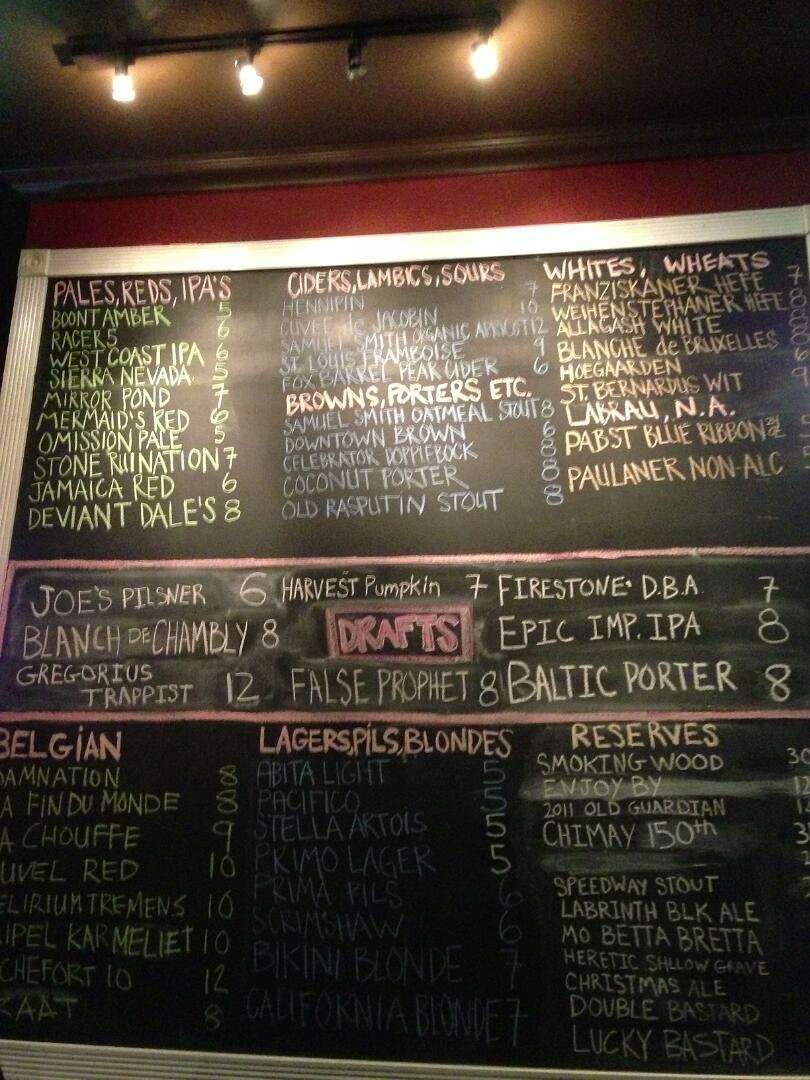 PALES, REDS, IPA'S
BOONT AMBER 5
RACER 5 6
WEST COAST IPA 6
SIERRA NEVADA 5
MIRROR POND 7
MERMAID'S RED 6
OMISSION PALE 5
STONE RUINATION 7
JAMAICA RED 6
DEVIANT DALE'S 8
CIDERS, LAMBICS, SOURS
HENNIPIN 7
CUVEE de JACOBIN 10
SAMUEL SMITH ORGANIC APRICOT 12
ST. LOUIS FRAMBOISE 9
FOX BARREL PEAR CIDER 6
BROWNS, PORTERS ETC.
SAMUEL SMITH OATMEAL STOUT 8
DOWNTOWN BROWN 6
CELEBRATOR DOPPLEBOCK 8
COCONUT PORTER 8
OLD RASPUTIN STOUT 8
WHITES, WHEATS
FRANZISKANER HEFE 7
WEIHENSTEPHANER HEFE 8
ALLAGASH WHITE
BLANCHE de BRUXELLES
HOEGAARDEN
ST. BERNARDUS WIT 9
LABRAU, N.A.
PABST BLUE RIBBON
PAULANER NON-ALC
JOE'S PILSNER 6
BLANCH DE CHAMBLY 8
GREGORIUS
TRAPPIST 12
HARVEST Pumpkin 7
DRAFTS
FALSE PROPHET 8
FIRESTONE D.B.A. 7
EPIC IMP. IPA 8
BALTIC PORTER 8
BELGIAN
DAMNATION 8
A FIN DU MONDE 8
A CHOUFFE 9
UVEL RED 10
ELIRIUM TREMENS 10
IPEL KARMELIET 10
CHEFORT 10 12
KAAT 8
LAGERS, PILS, BLONDES
ABITA LIGHT 5
PACIFICO 5
STELLA ARTOIS 5
PRIMO LAGER 5
PRIMA PILS 6
SCRIMSHAW 6
BIKINI BLONDE 7
CALIFORNIA BLONDE 7
RESERVES
SMOKING WOOD 30
ENJOY BY 12
2011 OLD GUARDIAN
CHIMAY 150th 3
SPEEDWAY STOUT
LABRINTH BLK ALE
MO BETTA BRETTA
HERETIC SHLLOW GRAVE
CHRISTMAS ALE
DOUBLE BASTARD
LUCKY BASTARD